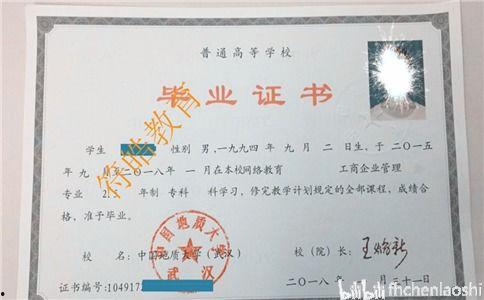 普通高等学校
毕业证书
学生 性别 男,一九九四年 九 月 二 日生,于二〇一五
年 九 月至二〇一八年 一 月在本校网络教育 工商企业管理
专业 2. 年制 专科 科学习,修完教学计划规定的全部课程,成绩合
格,准予毕业。
校 名:中国地质大学(武汉) 校(院)长:
证书编号:104917
二〇一八年 月三十一日
中国地质大学
武汉
符皓教育
bilibili fhchenlaoshi